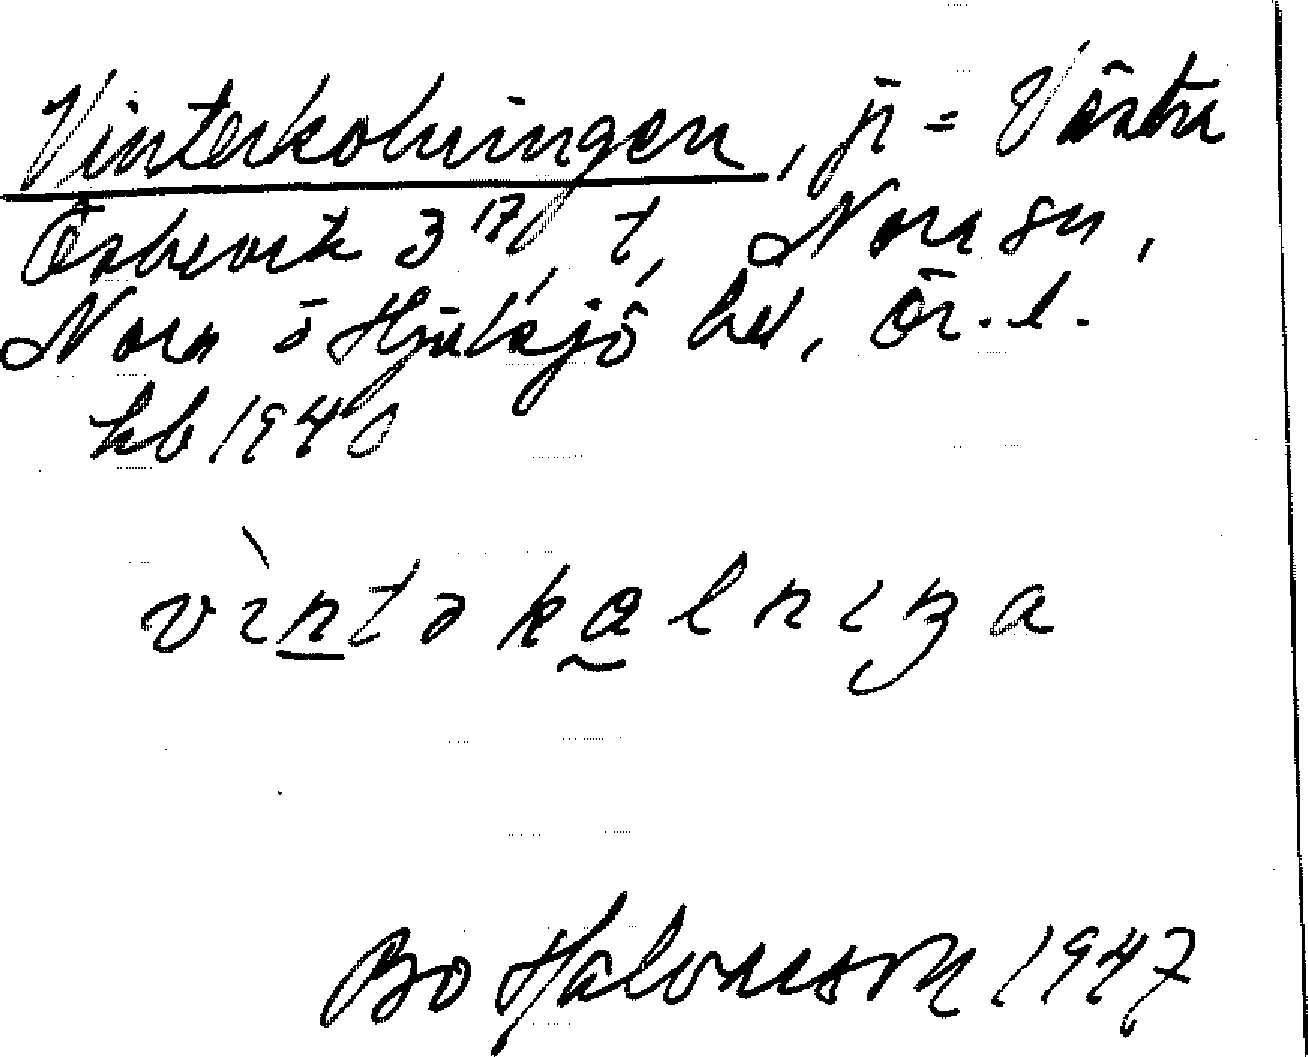 Vinterkolningen, jr = Västra
Öskevik 3¹⁷, t, Nora sn,
Nora o Hjulsjö hd, Ör. l.
kb 1940
vìntəkalniŋa
Bo Halvarsson 1947